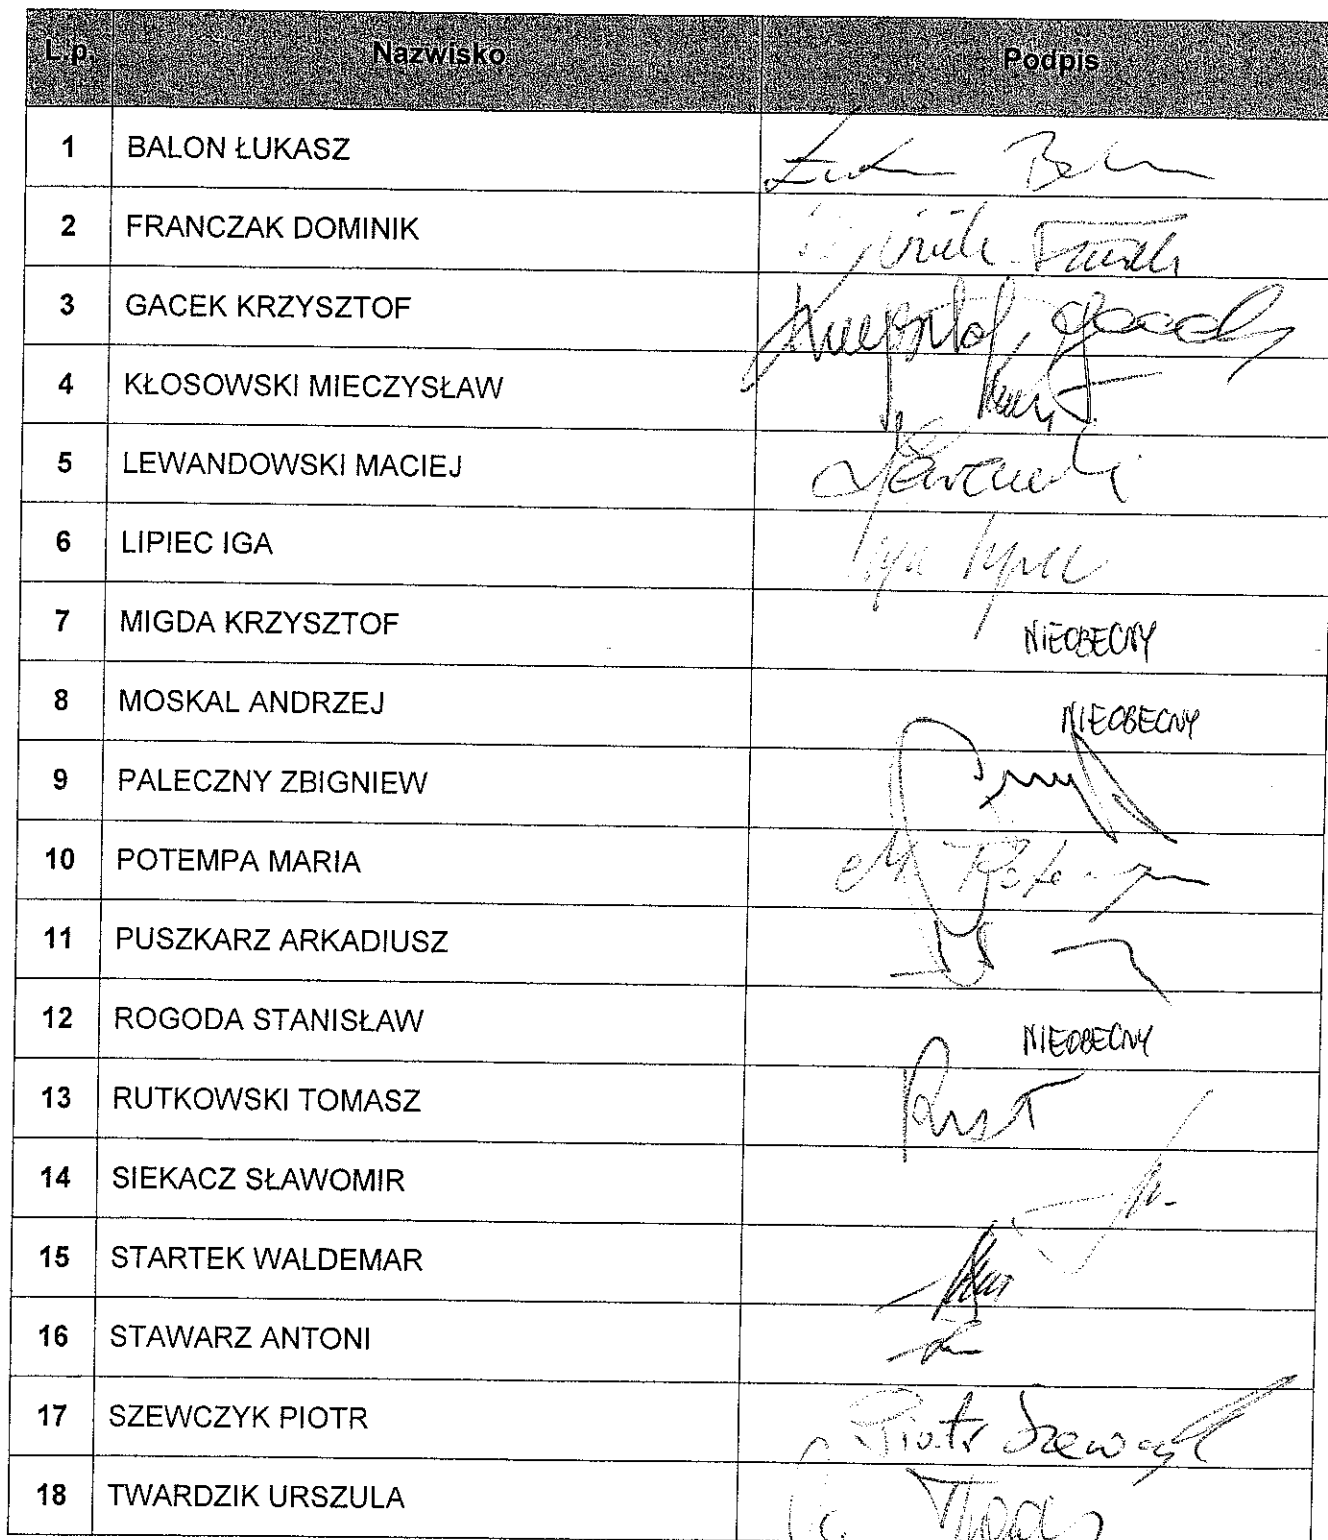 L.p. Nazwisko Podpis
1 BALON ŁUKASZ
2 FRANCZAK DOMINIK
3 GACEK KRZYSZTOF Krzysztof Gacek
4 KŁOSOWSKI MIECZYSŁAW
5 LEWANDOWSKI MACIEJ
6 LIPIEC IGA Iga Lipiec
7 MIGDA KRZYSZTOF NIEOBECNY
8 MOSKAL ANDRZEJ NIEOBECNY
9 PALECZNY ZBIGNIEW
10 POTEMPA MARIA
11 PUSZKARZ ARKADIUSZ
12 ROGODA STANISŁAW NIEOBECNY
13 RUTKOWSKI TOMASZ
14 SIEKACZ SŁAWOMIR
15 STARTEK WALDEMAR
16 STAWARZ ANTONI
17 SZEWCZYK PIOTR Piotr Szewczyk
18 TWARDZIK URSZULA